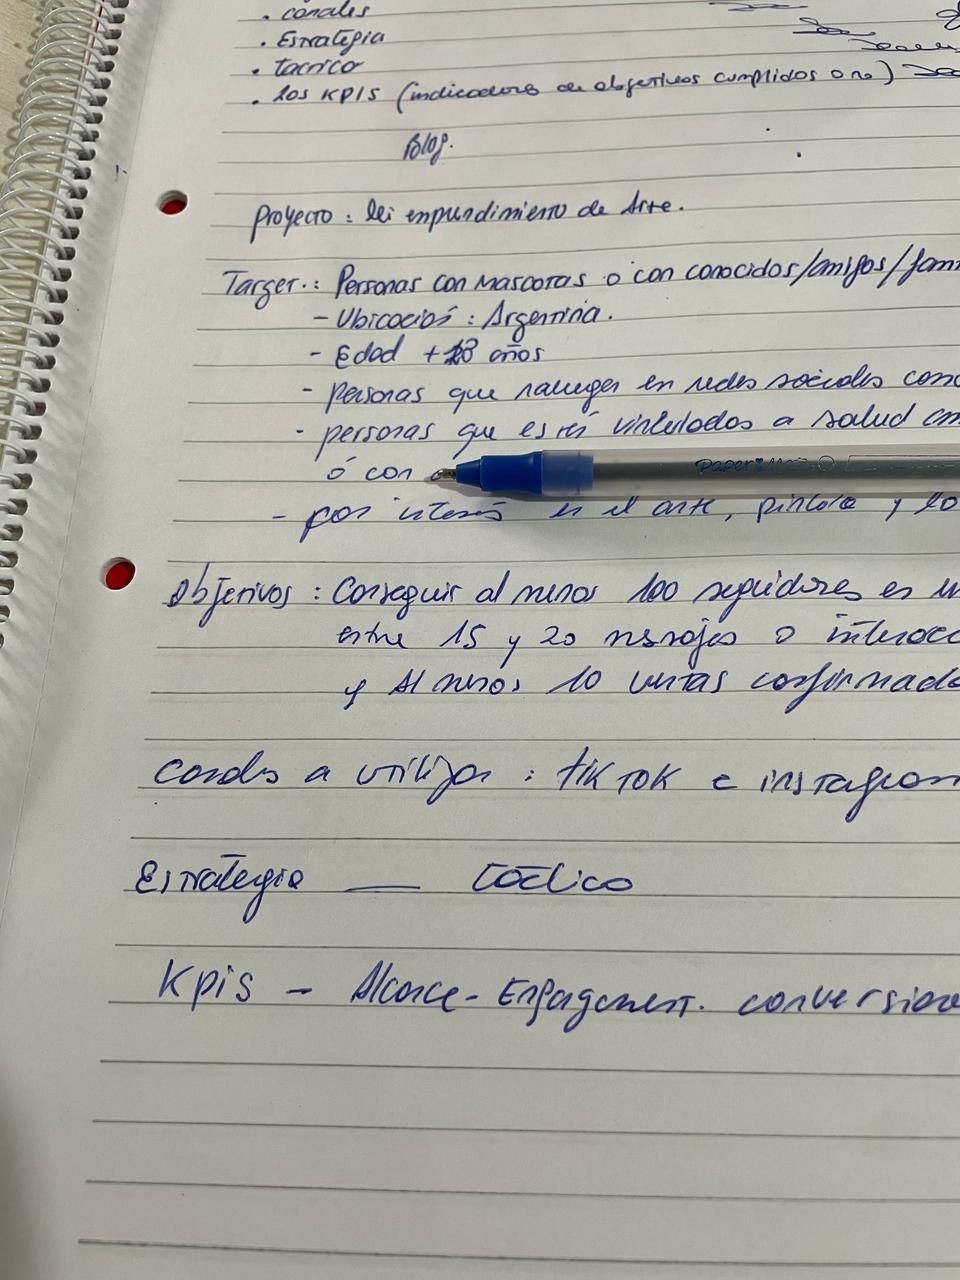 . canales
. Estrategia
. tactico
. Los KPIS (indicadores de objetivos cumplidos o no)
Blog.
Proyecto : Mi emprendimiento de Arte.
Target.: Personas con mascotas o con conocidos/amigos/fam
- Ubicación : Argentina.
- Edad + 18 años
- personas que naveguen en redes sociales como
- personas que estén vinculados a salud
ó con
Paper Mate
- por interés en el arte, pintura y lo
Objetivos : Conseguir al menos 100 seguidores en
entre 15 y 20 mensajes o interacc
y Al menos 10 ventas confirmada
canales a utilizar : tiktok e instagram
Estrategia — táctico
Kpis - Alcance - Engagement. conversion